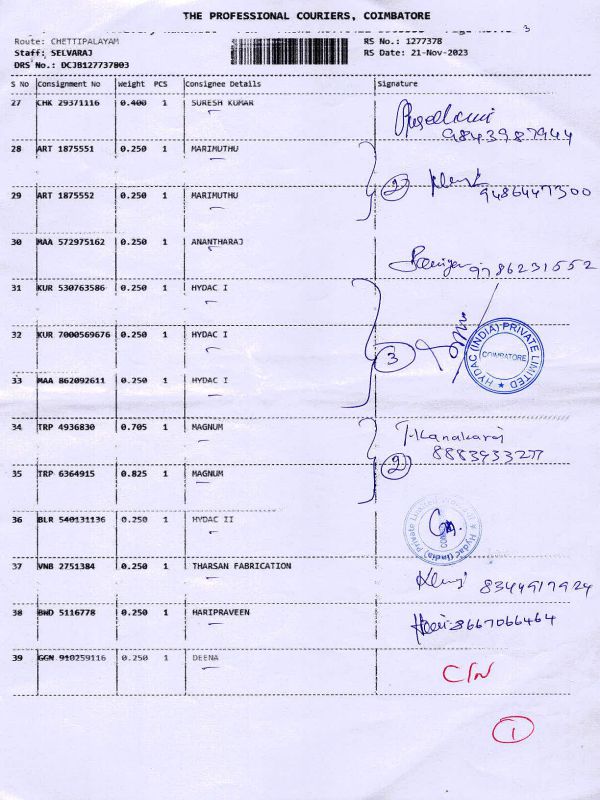 THE PROFESSIONAL COURIERS, COIMBATORE
3
Route: CHETTIPALAYAM
RS No.: 1277378
Staff: SELVARAJ
RS Date: 21-Nov-2023
DRS No.: DCJB127737803
S No Consignment No Weight PCS Consignee Details Signature
27 CHK 29371116 0.400 1 SURESH KUMAR
9843987944
28 ART 1875551 0.250 1 MARIMUTHU
2 9486447300
29 ART 1875552 0.250 1 MARIMUTHU
30 MAA 572975162 0.250 1 ANANTHARAJ
9786231552
31 KUR 530763586 0.250 1 HYDAC I
32 KUR 7000569676 0.250 1 HYDAC I
3
HYDAC (INDIA) PRIVATE LIMITED
COIMBATORE
33 MAA 862092611 0.250 1 HYDAC I
34 TRP 4936830 0.705 1 MAGNUM
T. Kanakaraj
8883933277
2
35 TRP 6364915 0.825 1 MAGNUM
36 BLR 540131136 0.250 1 HYDAC II
Hydac (India) Private Limited
37 VNB 2751384 0.250 1 THARSAN FABRICATION
8344917924
38 BWD 5116778 0.250 1 HARIPRAVEEN
Hari 8667066464
39 GGN 910259116 0.250 1 DEENA
C/N
1